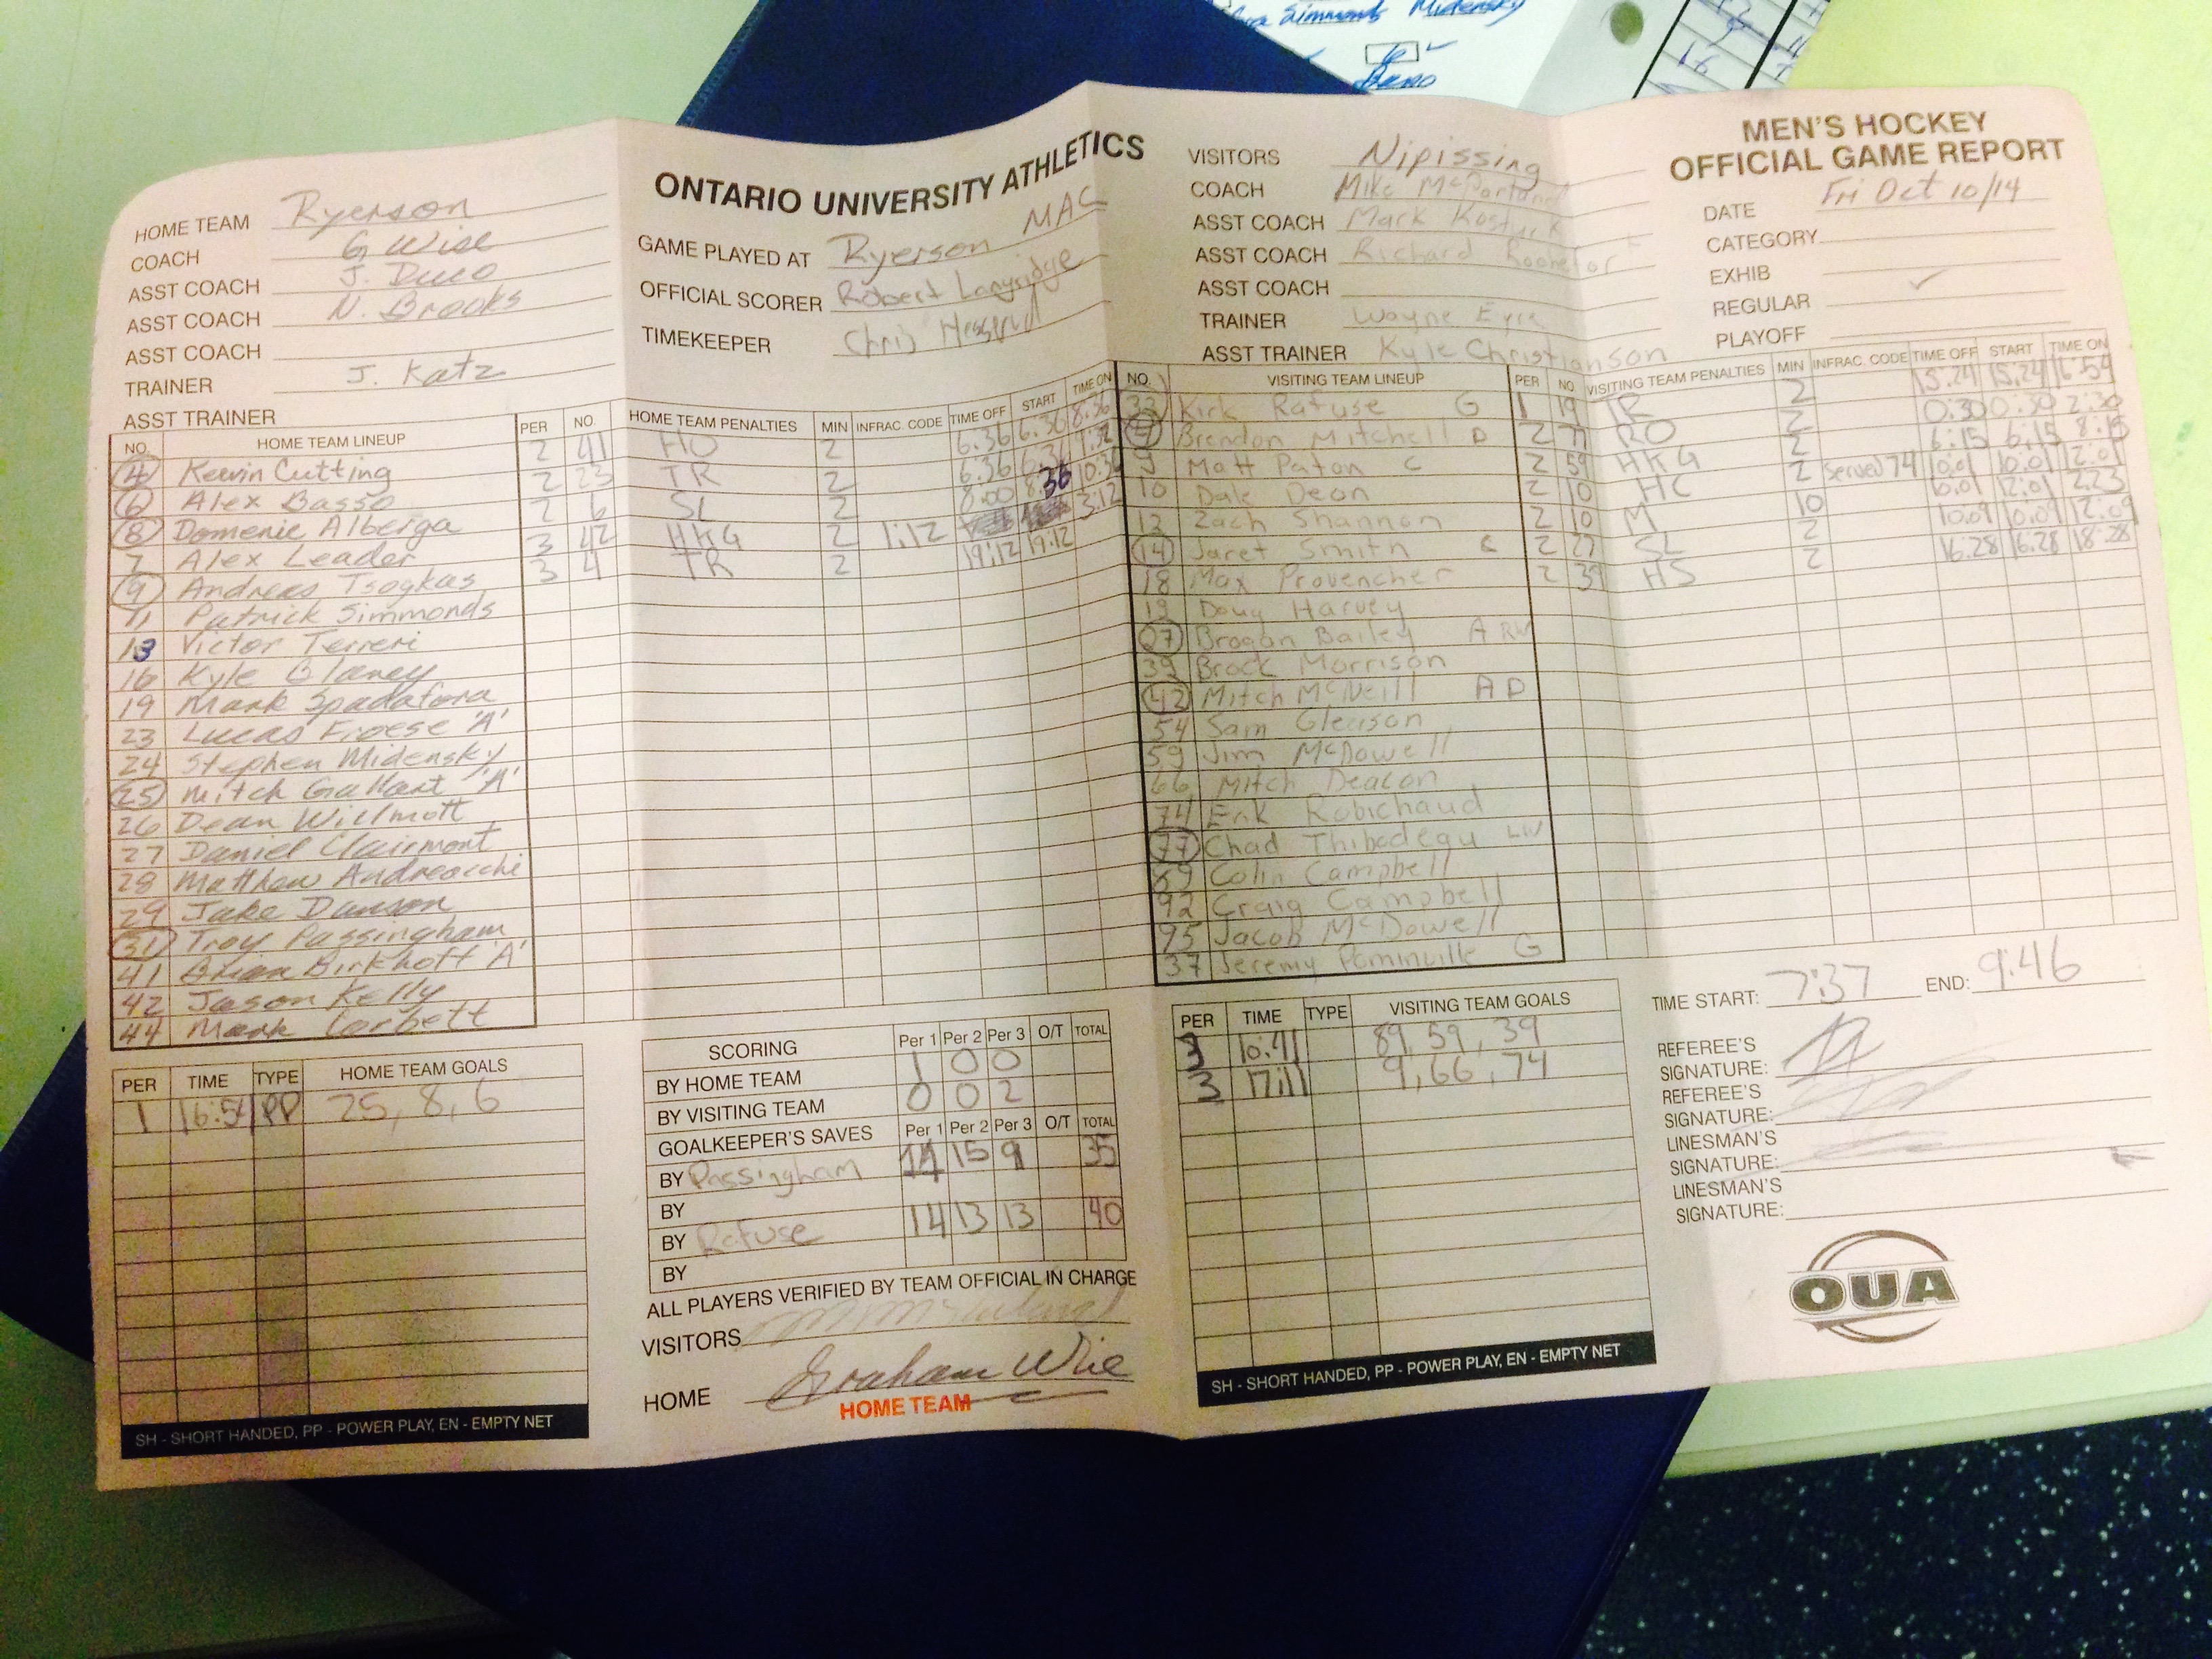 Simmonds Midensky
6
ONTARIO UNIVERSITY ATHLETICS
MEN'S HOCKEY
OFFICIAL GAME REPORT
HOME TEAM Ryerson
COACH G Wise
ASST COACH J. Duco
ASST COACH N. Brooks
ASST COACH
TRAINER J. Katz
ASST TRAINER
GAME PLAYED AT Ryerson MAC
OFFICIAL SCORER Robert
TIMEKEEPER Chris
VISITORS Nipissing
COACH Mike McParland
ASST COACH Mark
ASST COACH Richard
ASST COACH
TRAINER Wayne Eyre
ASST TRAINER Kyle Christianson
DATE Fri Oct 10/14
CATEGORY
EXHIB
REGULAR ✓
PLAYOFF
NO. HOME TEAM LINEUP
4 Kevin Cutting
6 Alex Basso
8 Domenic Alberga
7 Alex Leader
9 Andreas Tsogkas
11 Patrick Simmonds
13 Victor Terreri
16 Kyle Blaney
19 Mark Spadafora
23 Lucas Froese 'A'
24 Stephen Midensky
25 Mitch Gallant 'A'
26 Dean Willmott
27 Daniel Clairmont
28 Matthew Andreacchi
29 Jake Danson
31 Troy Passingham
41 Brian Birkhoff 'A'
42 Jason Kelly
44 Mark Corbett
PER NO. HOME TEAM PENALTIES MIN INFRAC. CODE TIME OFF START TIME ON
2 41 HO 2 6.36 6.36 8.36
2 23 TR 2 6.36
2 6 SL 2 8.00 8.36 10.36
3 42 HKG 2 1:12 3:12
3 4 TR 2 19:12 19:12
NO. VISITING TEAM LINEUP
33 Kirk Rafuse G
4 Brendon Mitchell D
9 Matt Paton C
10 Dale Deon
12 Zach Shannon
14 Jaret Smith C
18 Max Provencher
19 Doug Harvey
27 Brogan Bailey A RW
39 Brock Morrison
42 Mitch McNeill A D
54 Sam Gleason
59 Jim McDowell
66 Mitch Deacon
74 Erik Robichaud
77 Chad Thibodeau LW
89 Colin Campbell
92 Craig Campbell
95 Jacob McDowell
37 Jeremy Pominville G
PER NO. VISITING TEAM PENALTIES MIN INFRAC. CODE TIME OFF START TIME ON
1 19 TR 2 15.24 15.24 16.54
2 77 RO 2 0:30 0:30 2:30
2 59 HKG 2 6:15 6:15 8:15
2 10 HC 2 Served 74 10:01 10:01 12:01
2 10 M 10 10:01 12:01
2 27 SL 2 10:09 10:09 12:09
2 39 HS 2 16.28 16.28 18.28
PER TIME TYPE HOME TEAM GOALS
1 16:54 PP 25, 8, 6
SH - SHORT HANDED, PP - POWER PLAY, EN - EMPTY NET
SCORING Per 1 Per 2 Per 3 O/T TOTAL
BY HOME TEAM 1 0 0
BY VISITING TEAM 0 0 2
GOALKEEPER'S SAVES Per 1 Per 2 Per 3 O/T TOTAL
BY Passingham 15 9 35
BY
BY Rafuse 14 13 13 40
BY
ALL PLAYERS VERIFIED BY TEAM OFFICIAL IN CHARGE
VISITORS
HOME Graham Wise
HOME TEAM
PER TIME TYPE VISITING TEAM GOALS
3 10:41 89, 59, 39
3 17:11 9, 66, 74
SH - SHORT HANDED, PP - POWER PLAY, EN - EMPTY NET
TIME START: 7:37 END: 9:46
REFEREE'S
SIGNATURE:
REFEREE'S
SIGNATURE:
LINESMAN'S
SIGNATURE:
LINESMAN'S
SIGNATURE:
OUA